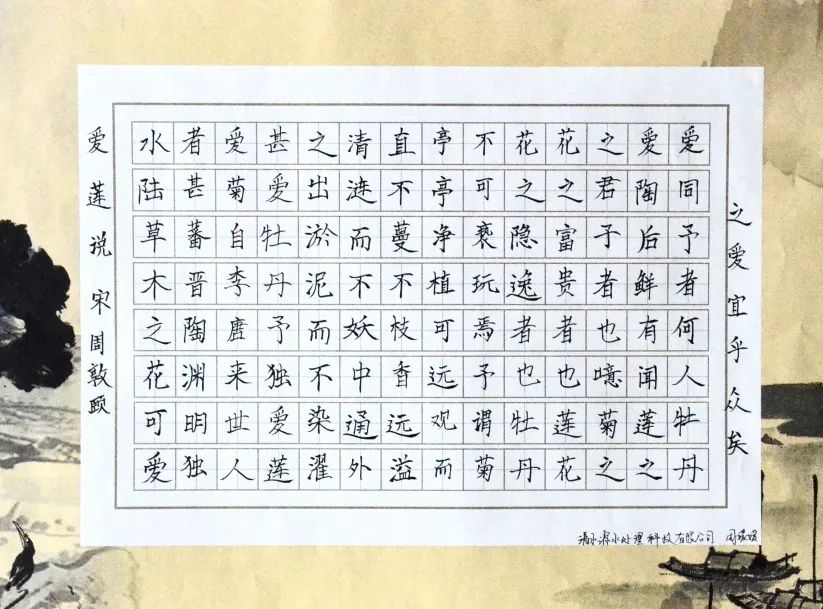 爱莲说 宋 周敦颐
水陆草木之花可爱
者甚蕃晋陶渊明独
爱菊自李唐来世人
甚爱牡丹予独爱莲
之出淤泥而不染濯
清涟而不妖中通外
直不蔓不枝香远溢
亭亭净植可远观而
不可亵玩焉予谓菊
花之隐逸者也牡丹
花之富贵者也莲花
之君子者也噫菊之
爱陶后鲜有闻莲之
爱同予者何人牡丹
之爱宜乎众矣
水处理科技有限公司 周